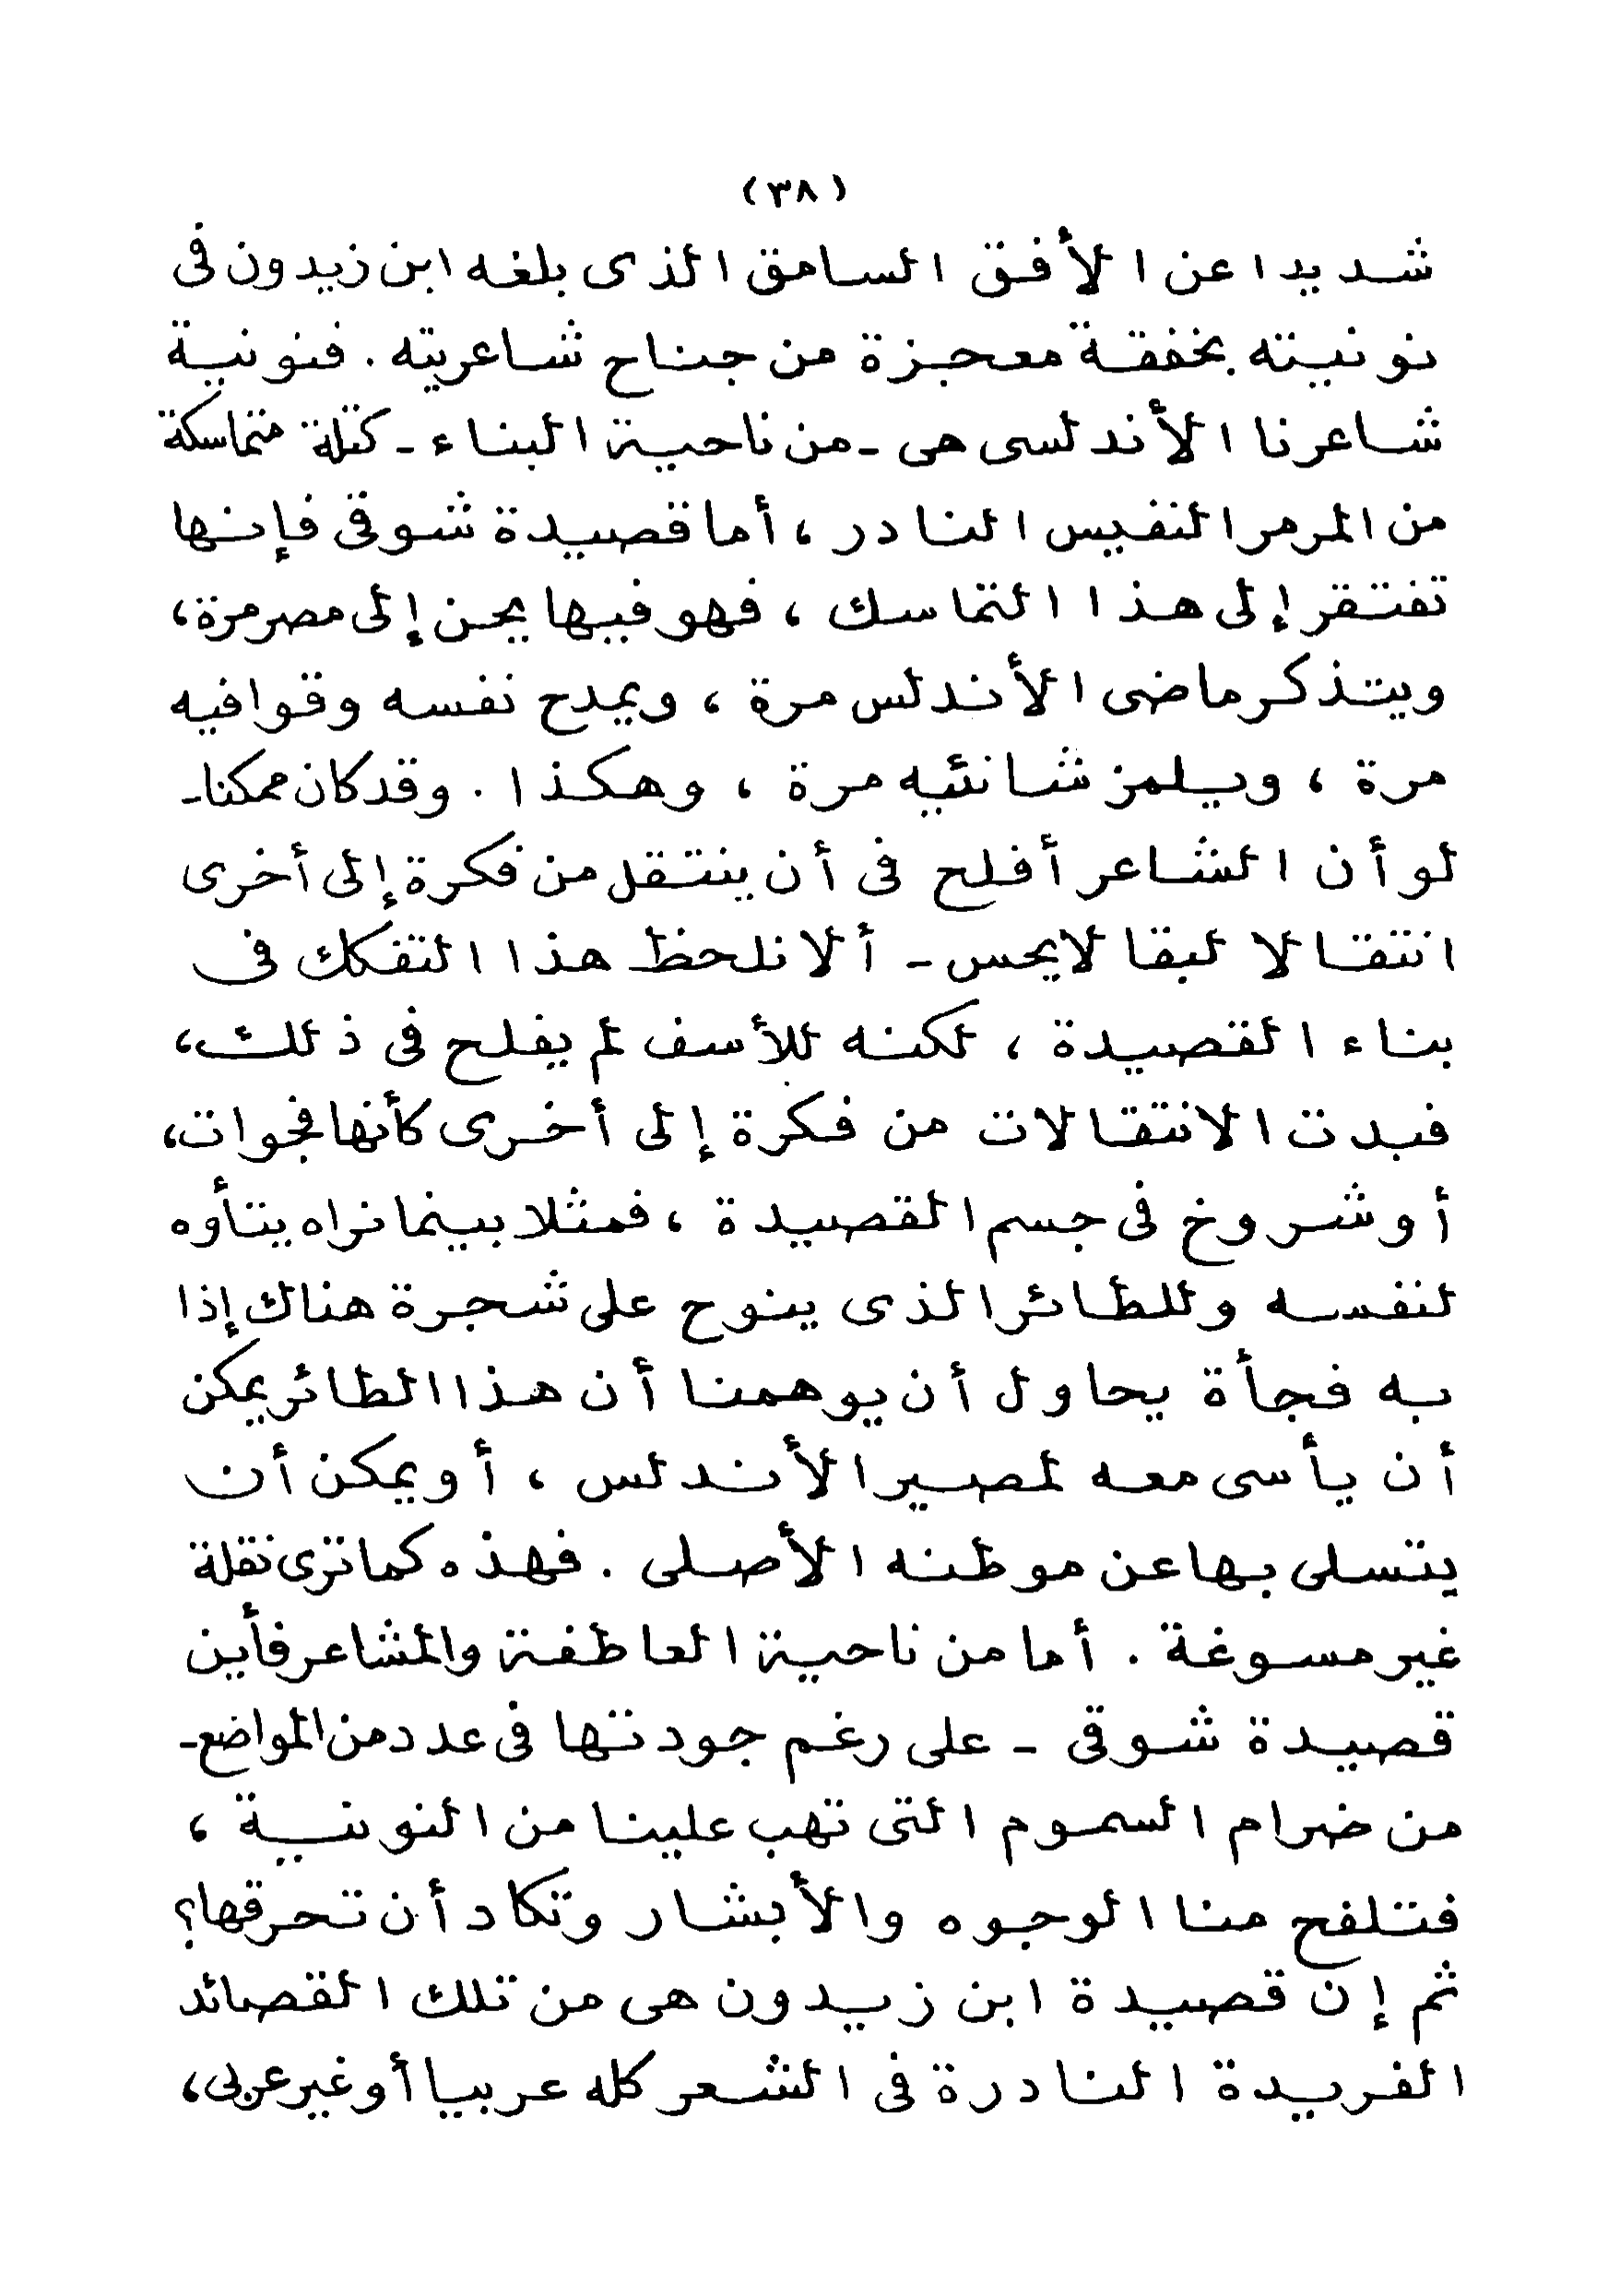 (٣٨)
شديدا عن الأفق السامق الذى بلغه ابن زيدون فى
نونيته بخفقة معجزة من جناح شاعريته . فنونية
شاعرنا الأندلسى هى - من ناحية البناء - كتلة متماسكة
من المرمر النفيس النادر ، أما قصيدة شوقى فإنها
تفتقر إلى هذا التماسك ، فهو فيها يحن إلى مصر مرة ،
ويتذكر ماضى الأندلس مرة ، ويمدح نفسه وقوافيه
مرة ، ويلمز شانئيه مرة ، وهكذا . وقد كان ممكنا -
لو أن الشاعر أفلح فى أن ينتقل من فكرة إلى أخرى
انتقالا لبقا لا يحس - ألا نلحظ هذا التفكك فى
بناء القصيدة ، لكنه للأسف لم يفلح فى ذلك ،
فبدت الانتقالات من فكرة إلى أخرى كأنها فجوات ،
أو شروخ فى جسم القصيدة ، فمثلا بينما نراه يتأوه
لنفسه وللطائر الذى ينوح على شجرة هناك إذا
به فجأة يحاول أن يوهمنا أن هذا الطائر يمكن
أن يأسى معه لمصير الأندلس ، أو يمكن أن
يتسلى بها عن موطنه الأصلى . فهذه كما ترى نقلة
غير مسوغة . أما من ناحية العاطفة والمشاعر فأين
قصيدة شوقى - على رغم جودتها فى عدد من المواضع -
من ضرام السموم التى تهب علينا من النونية ،
فتلفح منا الوجوه والأبشار وتكاد أن تحرقها؟
ثم إن قصيدة ابن زيدون هى من تلك القصائد
الفريدة النادرة فى الشعر كله عربيا أو غير عربى ،